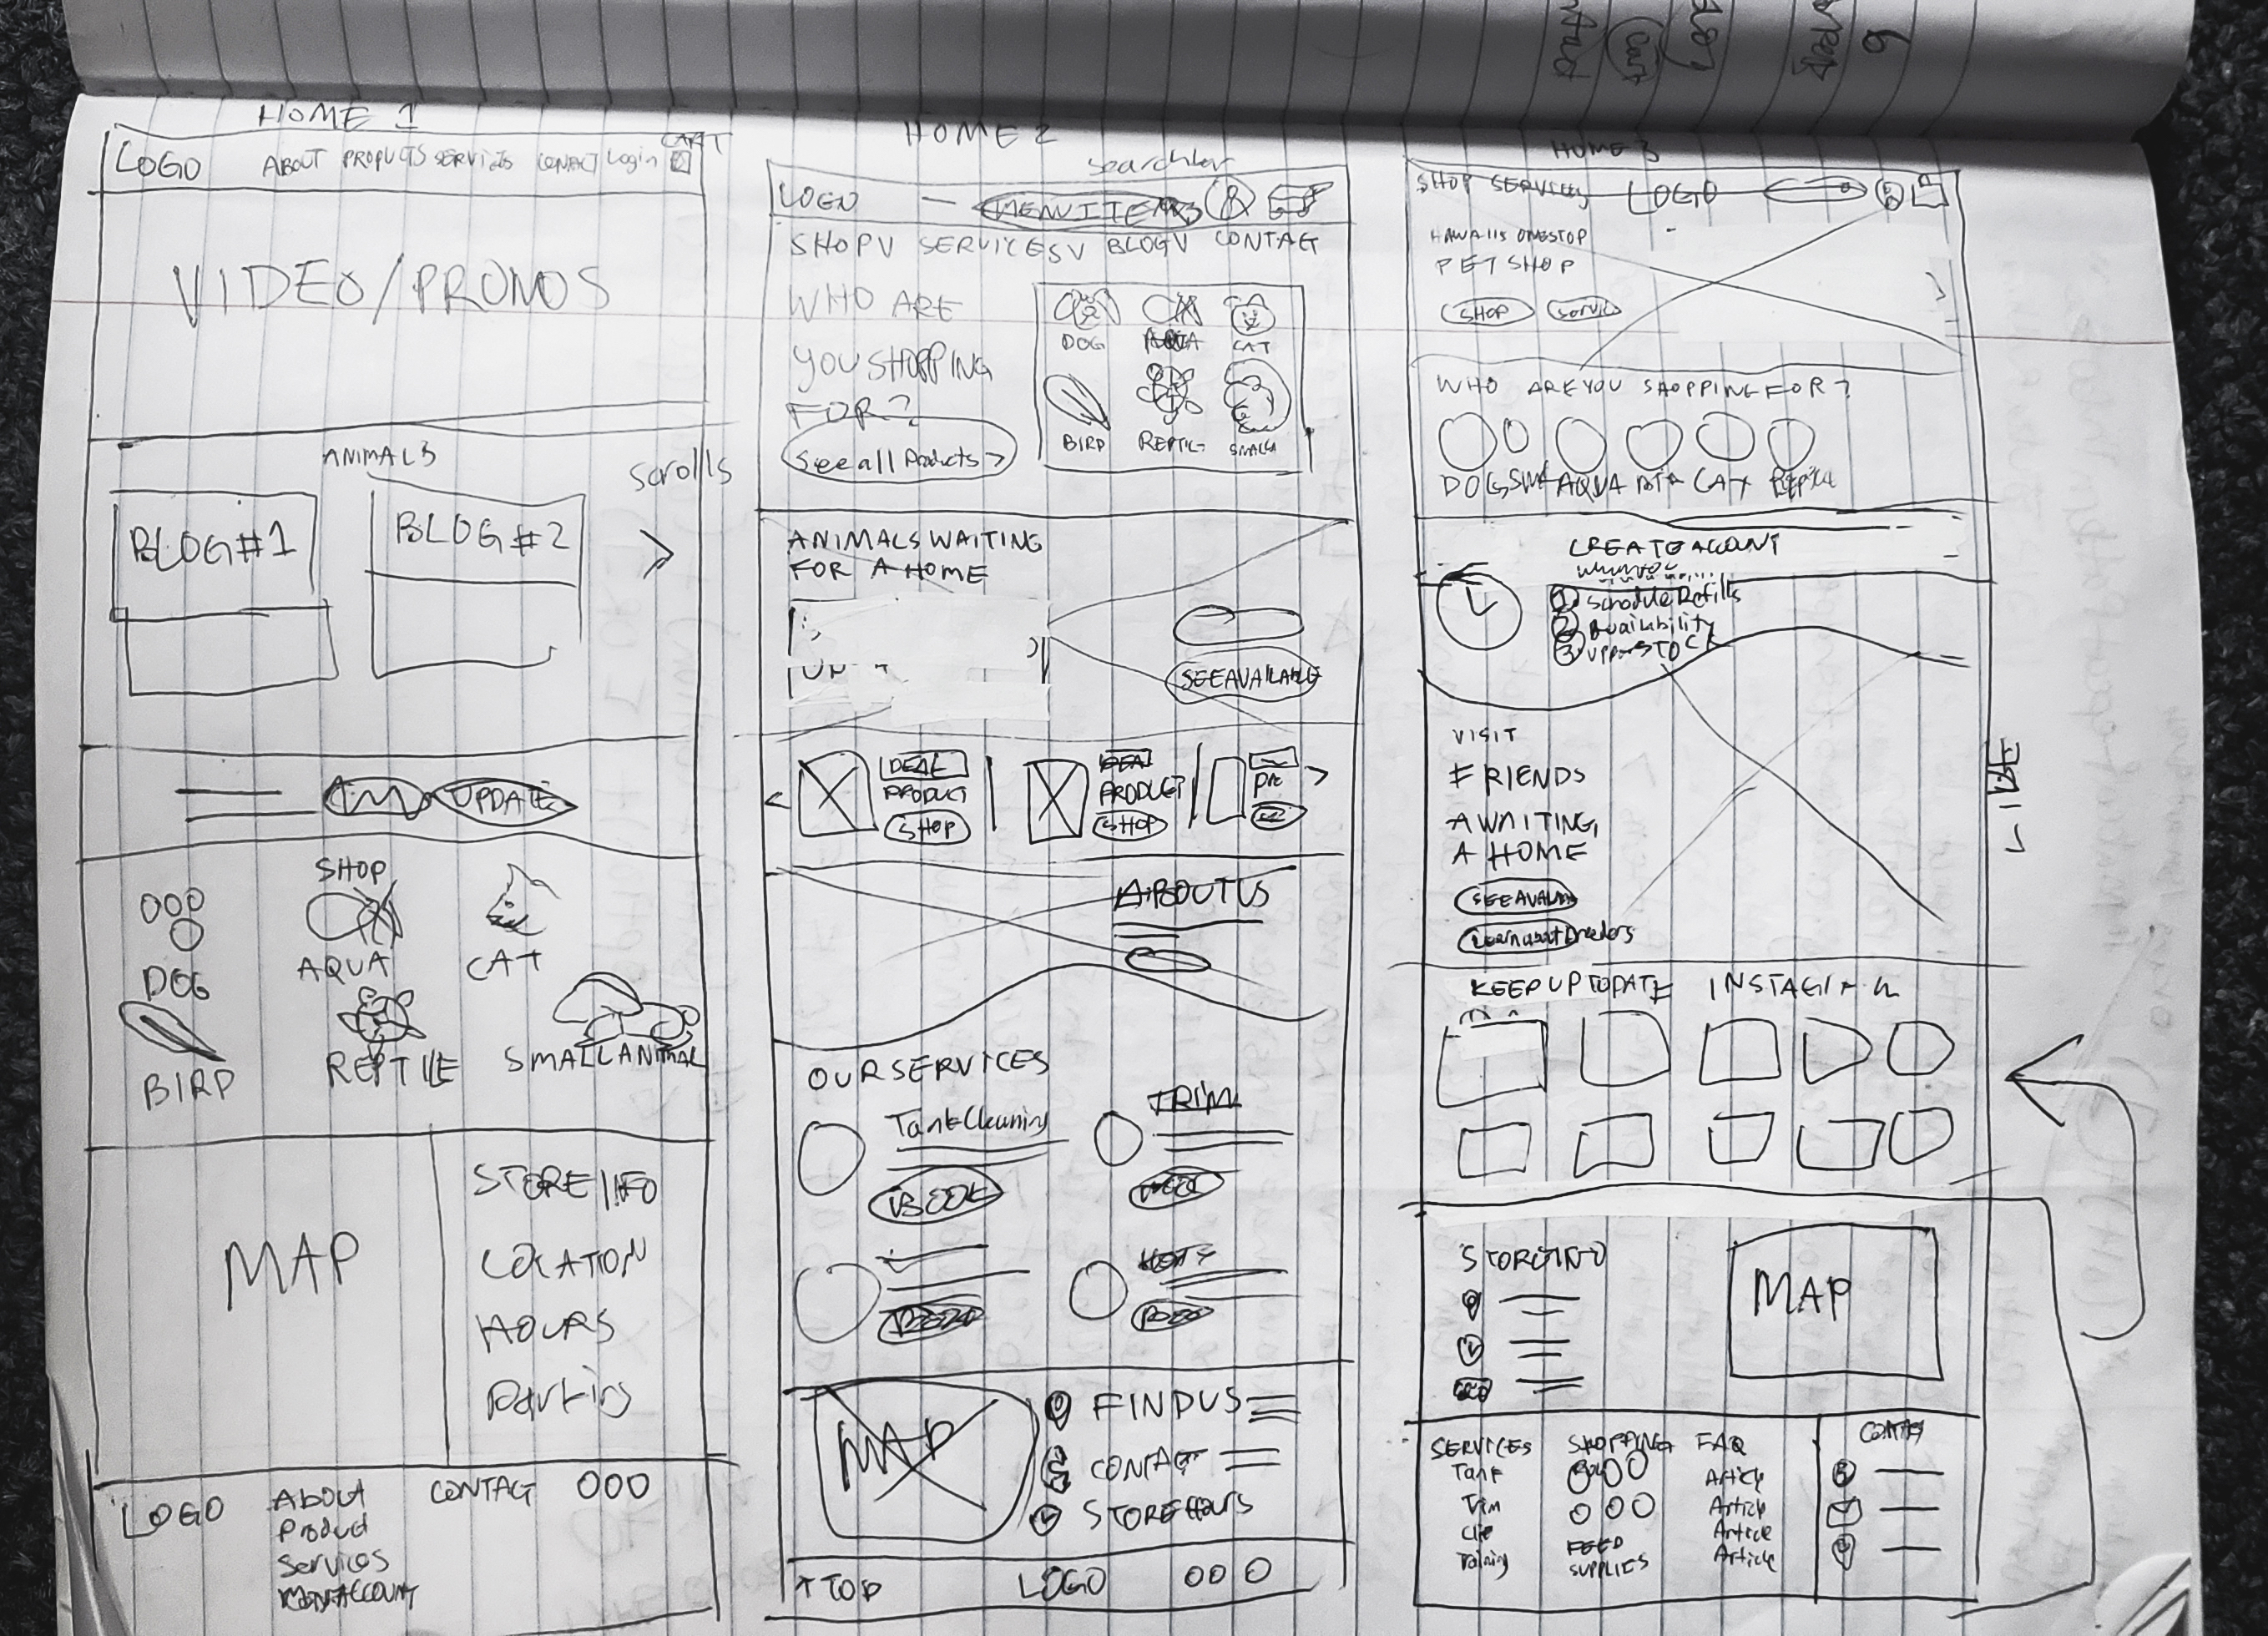 HOME 1
CART
LOGO ABOUT PRODUCTS SERVICES CONTACT Login
VIDEO/PROMOS
ANIMALS
scrolls
BLOG #1
BLOG #2
>
UPDATE
SHOP
DOG
AQUA
CAT
BIRD
REPTILE
SMALL ANIMAL
MAP
STORE INFO
LOCATION
HOURS
Parking
LOGO
About
Product
Services
CONTAC
HOME 2
searchbar
LOGO
MENU ITEMS
SHOP V SERVICES V BLOG V CONTAC
WHO ARE
YOU SHOPPING
FOR?
See all Products >
DOG AQUA CAT
BIRD REPTIL
ANIMALS WAITING
FOR A HOME
SEE AVAILABLE
<
DEAL
PRODUCT
SHOP
DEAL
PRODUCT
SHOP
>
ABOUT US
OUR SERVICES
Tank Cleaning
BOOK
TRIM
MAP
FIND US
CONTACT
STORE HOURS
↑ TOP LOGO
HOME 3
SHOP SERVICES LOGO
HAWAIIS ONESTOP
PET SHOP
SHOP
WHO ARE YOU SHOPPING FOR?
DOG AQUA CAT
CREATE ACCOUNT
1 Schedule Refills
2 Availability
3
VISIT
FRIENDS
AWAITING
A HOME
KEEP UP TO DATE
STORE INFO
MAP
SERVICES
Tank
Trim
Clip
Training
SHOPPING
FEED
SUPPLIES
FAQ
Article
Article
Article
Article
Cart
6